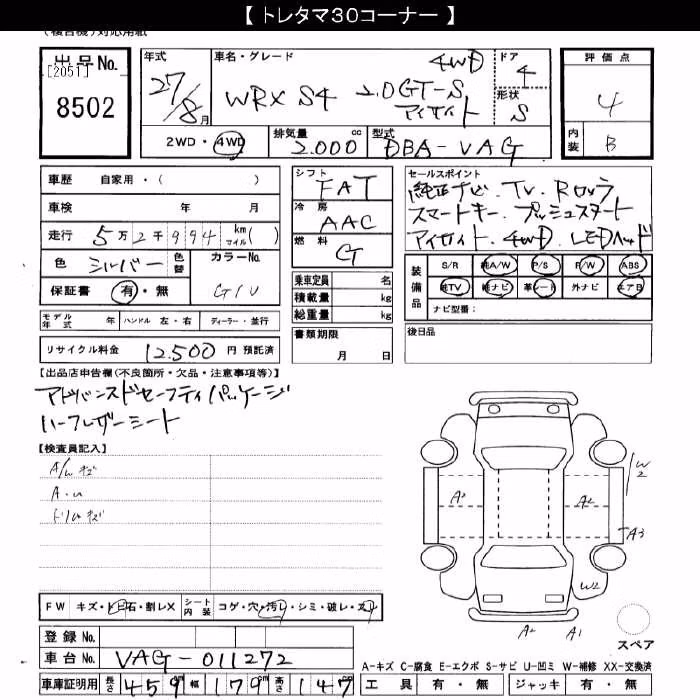 【 トレタマ30コーナー 】
(複合機)対応用紙
出品No.
[2051]
8502
年式 27/8月
車名・グレード
WRX S4 2.0GT-S 4WD
アイサイト
ドア 4
形状 S
評価点 4
内装 B
2WD・4WD
排気量 2.000 cc
型式 DBA-VAG
車歴 自家用・( )
車検 年 月
走行 5万2千994 km マイル( )
色 シルバー 色替
カラーNo. G1U
保証書 有・無
シフト FAT
冷房 AAC
燃料 G
乗車定員 名
積載量 kg
総重量 kg
セールスポイント
純正ナビ. TV. Rカメラ
スマートキー. プッシュスタート
アイサイト. 4WD. LEDヘッド
装備品
S/R 純A/W P/S P/W ABS
純TV 純ナビ 革シート 外ナビ エアB
ナビ型番:
モデル年式 年 ハンドル 左・右 ディーラー・並行
リサイクル料金 12.500 円 預託済
書類期限
月 日
後日品
【出品店申告欄(不良箇所・欠品・注意事項等)】
アドバンスドセーフティパッケージ
ハーフレザーシート
【検査員記入】
A/W キズ
A・U
ドリムキズ
W2
A2
A2
A3
W2
A2
A1
スペア
FW キズ・ヒビ石・割レX
シート内装 コゲ・穴・汚レ・シミ・破レ・スレ
登録No.
車台No. VAG-011272
車庫証明用 長さ 459cm 幅 179cm 高さ 147cm
A-キズ C-腐食 E-エクボ S-サビ U-凹ミ W-補修 XX-交換済
工具 有・無 ジャッキ 有・無